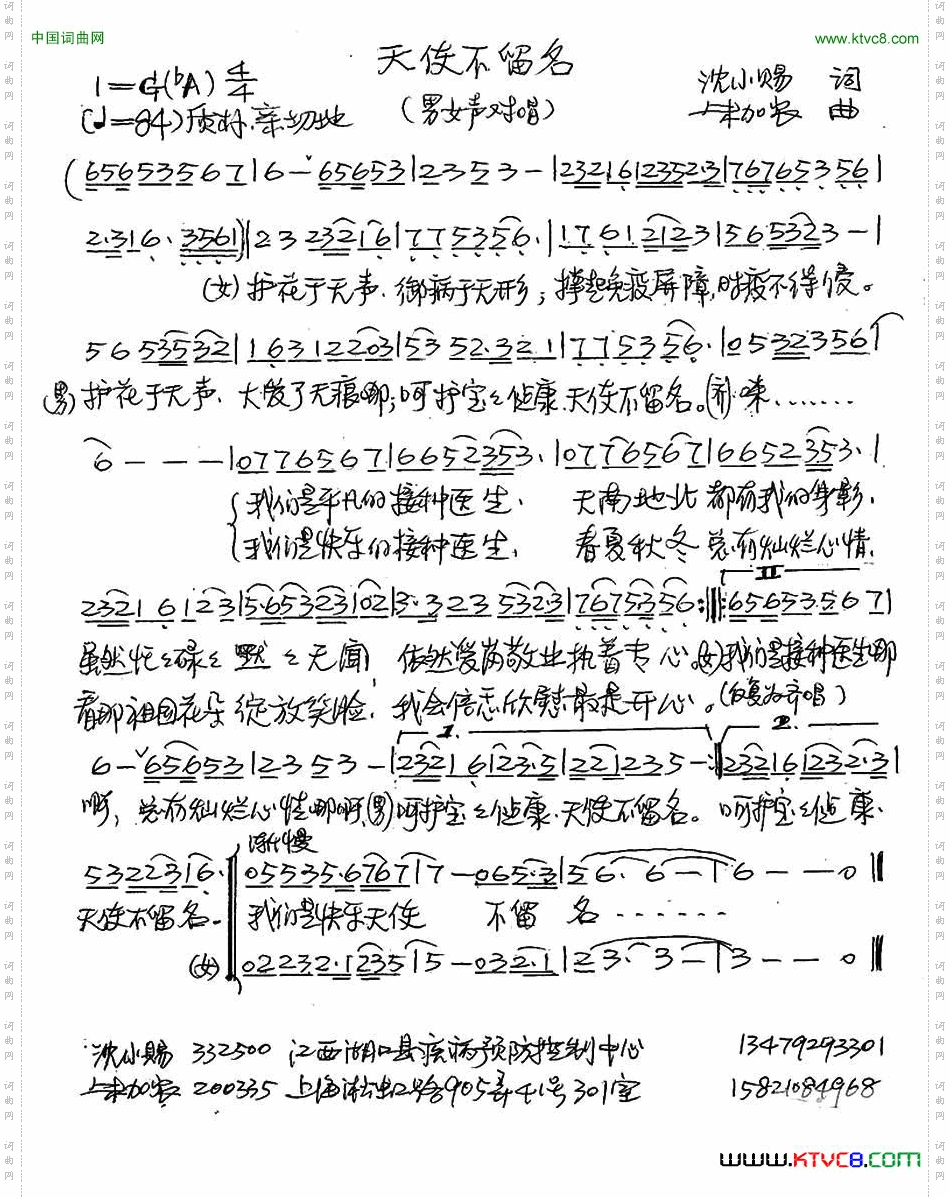 中国词曲网
www.ktvc8.com
天使不留名
1=G(bA) 4/4
沈小赐 词
(♩=84)质朴、亲切地
(男女声对唱)
加农 曲
(6565356671|6-ˇ65653|2353-|2321612352·3|7676535 56|
2·316· 3561)|23 23216|775356·|17612123|5653 23-|
(女)护花于无声、御病于无形;撑起免疫屏障,时疫不得侵。
565 3532|16312203|5352·321|775356·|0532356|
(男)护花于无声、大爱了无痕哪;呵护宝宝健康、天使不留名。(齐)来.......
6---|07765671|6652353·|07765671|6652353·|
我们是平凡的接种医生、 天南地北都有我的身影、
我们是快乐的接种医生、 春夏秋冬总有灿烂心情、
II
2321 6123|5·6532302|3·323 532·3|7675356:||65653·5671|
虽然忙忙碌碌默默无闻, 依然爱岗敬业执着专心。(女)我们是接种医生哪
看那祖国花朵绽放笑脸, 我会倍感欣慰最是开心。(反复为齐唱)
I. 2.
6-ˇ65653|2353-|2321 6123·5|221235-:||232161232·3|
啊,总有灿烂心情哪啊,(男)呵护宝宝健康、天使不留名。呵护宝宝健康、
渐慢
5322316·||05535·67671|7-065·3|56·6-|6--0||
天使不留名。 我们是快乐天使 不留 名......
(女) 02232·1235|5-032·1|23·3-|3--0||
沈小赐 332500 江西湖口县疾病预防控制中心 13479293301
加农 200335 上海淞虹路905弄41号301室 15821084968
www.KTVC8.COM
词曲网